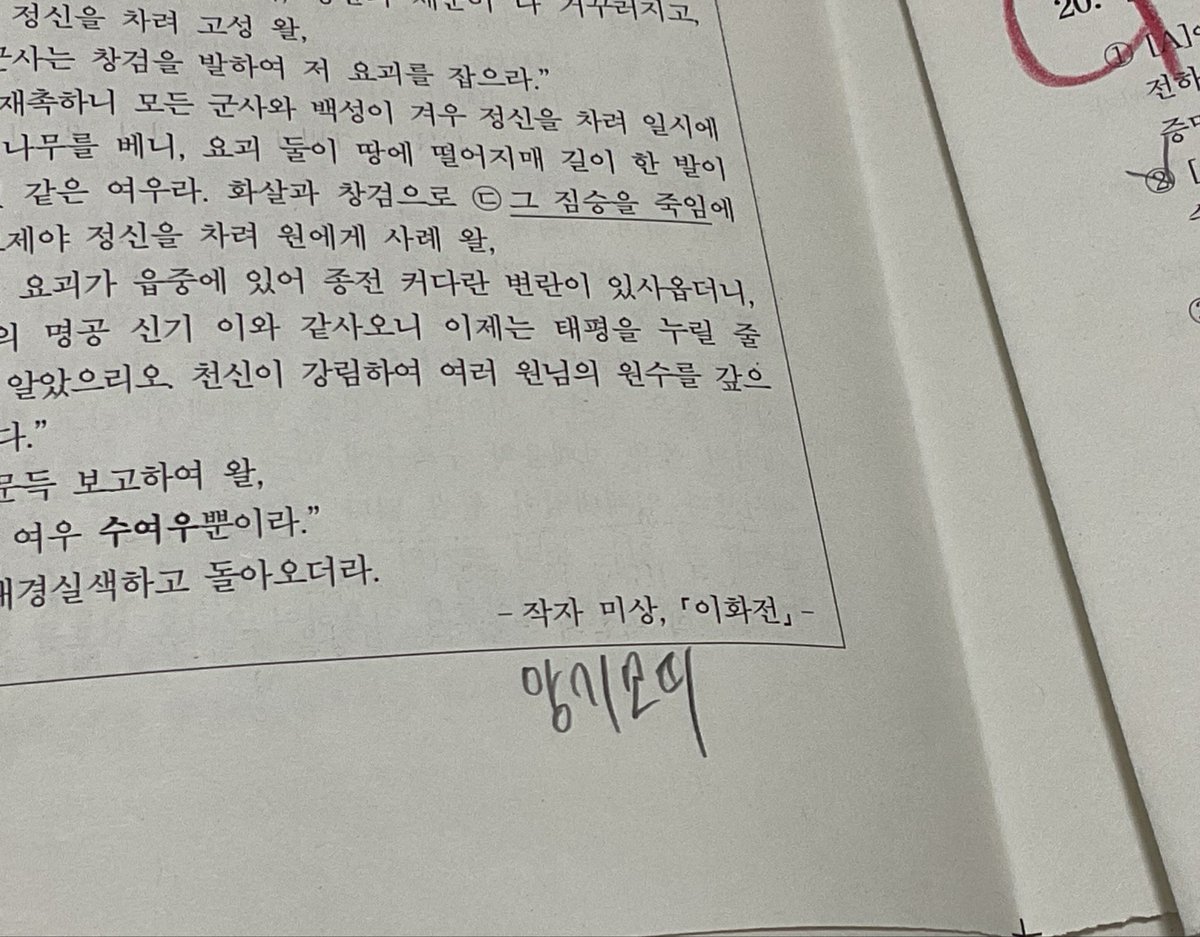 정신을 차려 고성 왈,
군사는 창검을 발하여 저 요괴를 잡으라.”
재촉하니 모든 군사와 백성이 겨우 정신을 차려 일시에
나무를 베니, 요괴 둘이 땅에 떨어지매 길이 한 발이
같은 여우라. 화살과 창검으로 ㉢그 짐승을 죽임에
제야 정신을 차려 원에게 사례 왈,
요괴가 읍중에 있어 종전 커다란 변란이 있사옵더니,
의 명공 신기 이와 같사오니 이제는 태평을 누릴 줄
알았으리오. 천신이 강림하여 여러 원님의 원수를 갚으
다.”
문득 보고하여 왈,
여우 수여우뿐이라.”
대경실색하고 돌아오더라.
- 작자 미상, 「이화전」 -
20.
① [A]
전하
증
② [